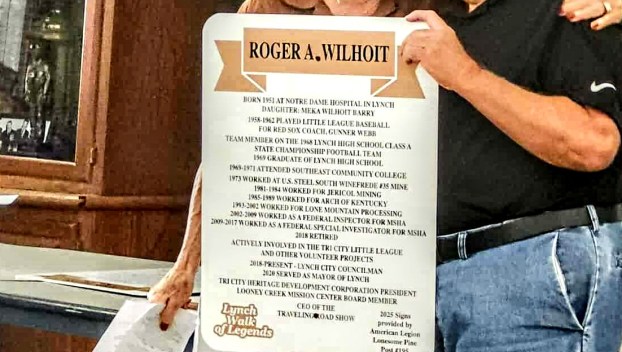 ROGER A. WILHOIT
BORN 1951 AT NOTRE DAME HOSPITAL IN LYNCH
DAUGHTER: MEKA WILHOIT BARRY
1958-1962 PLAYED LITTLE LEAGUE BASEBALL
FOR RED SOX COACH, GUNNER WEBB
TEAM MEMBER ON THE 1968 LYNCH HIGH SCHOOL CLASS A
STATE CHAMPIONSHIP FOOTBALL TEAM
1969 GRADUATE OF LYNCH HIGH SCHOOL
1969-1971 ATTENDED SOUTHEAST COMMUNITY COLLEGE
1973 WORKED AT U.S. STEEL SOUTH WINEFREDE #35 MINE
1981-1984 WORKED FOR JERICOL MINING
1985-1989 WORKED FOR ARCH OF KENTUCKY
1993-2002 WORKED FOR LONE MOUNTAIN PROCESSING
2002-2009 WORKED AS A FEDERAL INSPECTOR FOR MSHA
2009-2017 WORKED AS A FEDERAL SPECIAL INVESTIGATOR FOR MSHA
2018 RETIRED
ACTIVELY INVOLVED IN THE TRI CITY LITTLE LEAGUE
AND OTHER VOLUNTEER PROJECTS
2018-PRESENT - LYNCH CITY COUNCILMAN
2020 SERVED AS MAYOR OF LYNCH
TRI CITY HERITAGE DEVELOPMENT CORPORATION PRESIDENT
LOONEY CREEK MISSION CENTER BOARD MEMBER
CEO OF THE
TRAVELING ROAD SHOW
Lynch
Walk
of Legends
2025 Signs
provided by
American Legion
Lonesome Pine
Post #195